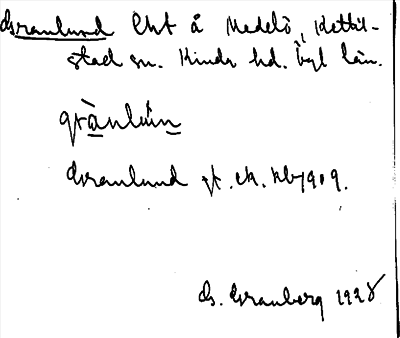 Granlund lht å Medelö, Kettil-
stad sn. Kinds hd. Ögl län.
grànlún
Granlund jr. ek. kby 1909.
G. Granberg 1928